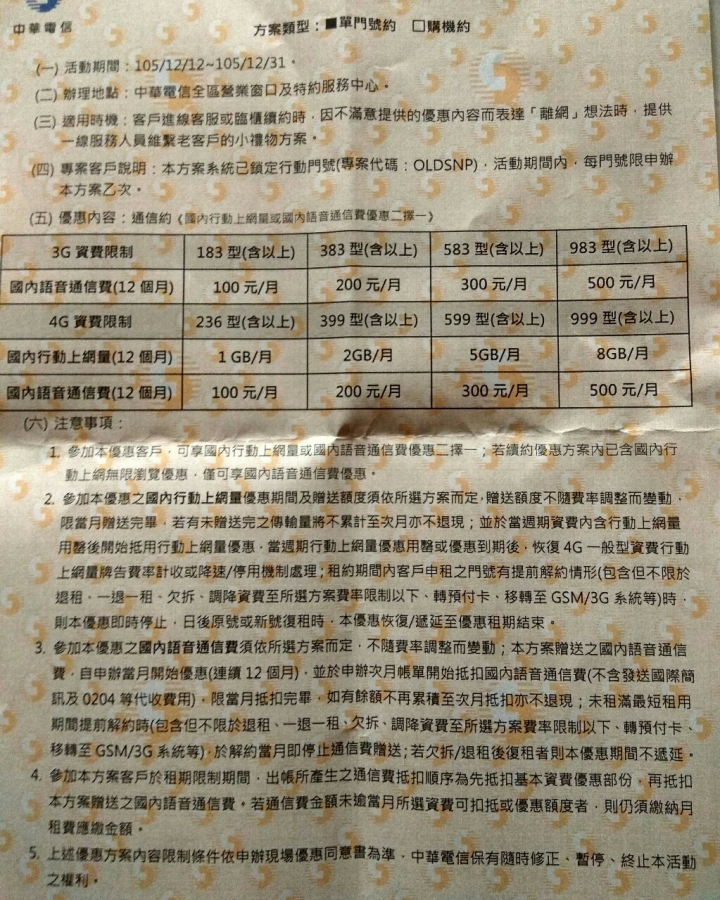 中華電信
方案類型：■單門號約 □購機約
(一) 活動期間：105/12/12~105/12/31。
(二) 辦理地點：中華電信全區營業窗口及特約服務中心。
(三) 適用時機：客戶進線客服或臨櫃續約時，因不滿意提供的優惠內容而表達「離網」想法時，提供
一線服務人員維繫老客戶的小禮物方案。
(四) 專案客戶說明：本方案系統已鎖定行動門號(專案代碼：OLDSNP)，活動期間內，每門號限申辦
本方案乙次。
(五) 優惠內容：通信約《國內行動上網量或國內語音通信費優惠二擇一》
3G 資費限制 183 型(含以上) 383 型(含以上) 583 型(含以上) 983 型(含以上)
國內語音通信費(12 個月) 100 元/月 200 元/月 300 元/月 500 元/月
4G 資費限制 236 型(含以上) 399 型(含以上) 599 型(含以上) 999 型(含以上)
國內行動上網量(12 個月) 1 GB/月 2GB/月 5GB/月 8GB/月
國內語音通信費(12 個月) 100 元/月 200 元/月 300 元/月 500 元/月
(六) 注意事項：
1. 參加本優惠客戶，可享國內行動上網量或國內語音通信費優惠二擇一；若續約優惠方案內已含國內行
動上網無限瀏覽優惠，僅可享國內語音通信費優惠。
2. 參加本優惠之國內行動上網量優惠期間及贈送額度須依所選方案而定，贈送額度不隨費率調整而變動，
限當月贈送完畢，若有未贈送完之傳輸量將不累計至次月亦不退現；並於當週期資費內含行動上網量
用罄後開始抵用行動上網量優惠，當週期行動上網量優惠用罄或優惠到期後，恢復 4G 一般型資費行動
上網量牌告費率計收或降速/停用機制處理；租約期間內客戶申租之門號有提前解約情形(包含但不限於
退租、一退一租、欠拆、調降資費至所選方案費率限制以下、轉預付卡、移轉至 GSM/3G 系統等)時，
則本優惠即時停止，日後原號或新號復租時，本優惠恢復/遞延至優惠租期結束。
3. 參加本優惠之國內語音通信費須依所選方案而定，不隨費率調整而變動；本方案贈送之國內語音通信
費，自申辦當月開始優惠(連續 12 個月)，並於申辦次月帳單開始抵扣國內語音通信費(不含發送國際簡
訊及 0204 等代收費用)，限當月抵扣完畢，如有餘額不再累積至次月抵扣亦不退現；未租滿最短租用
期間提前解約時(包含但不限於退租、一退一租、欠拆、調降資費至所選方案費率限制以下、轉預付卡、
移轉至 GSM/3G 系統等)，於解約當月即停止通信費贈送；若欠拆/退租後復租者則本優惠期間不遞延。
4. 參加本方案客戶於租期限制期間，出帳所產生之通信費抵扣順序為先抵扣基本資費優惠部份，再抵扣
本方案贈送之國內語音通信費。若通信費金額未逾當月所選資費可扣抵或優惠額度者，則仍須繳納月
租費應繳金額。
5. 上述優惠方案內容限制條件依申辦現場優惠同意書為準，中華電信保有隨時修正、暫停、終止本活動
之權利。